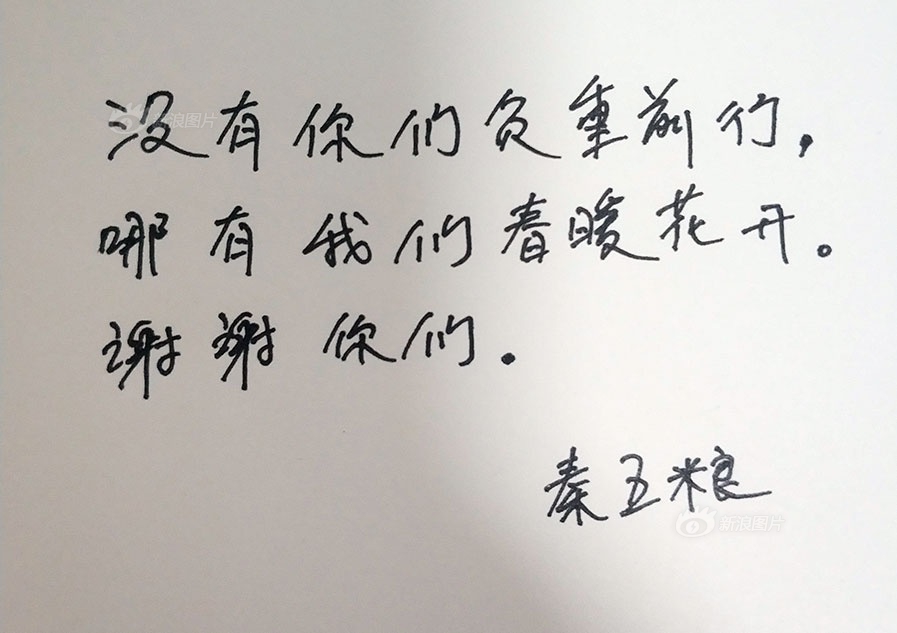 没有你们负重前行，
哪有我们春暖花开。
谢谢你们.
秦五粮
新浪图片
新浪图片